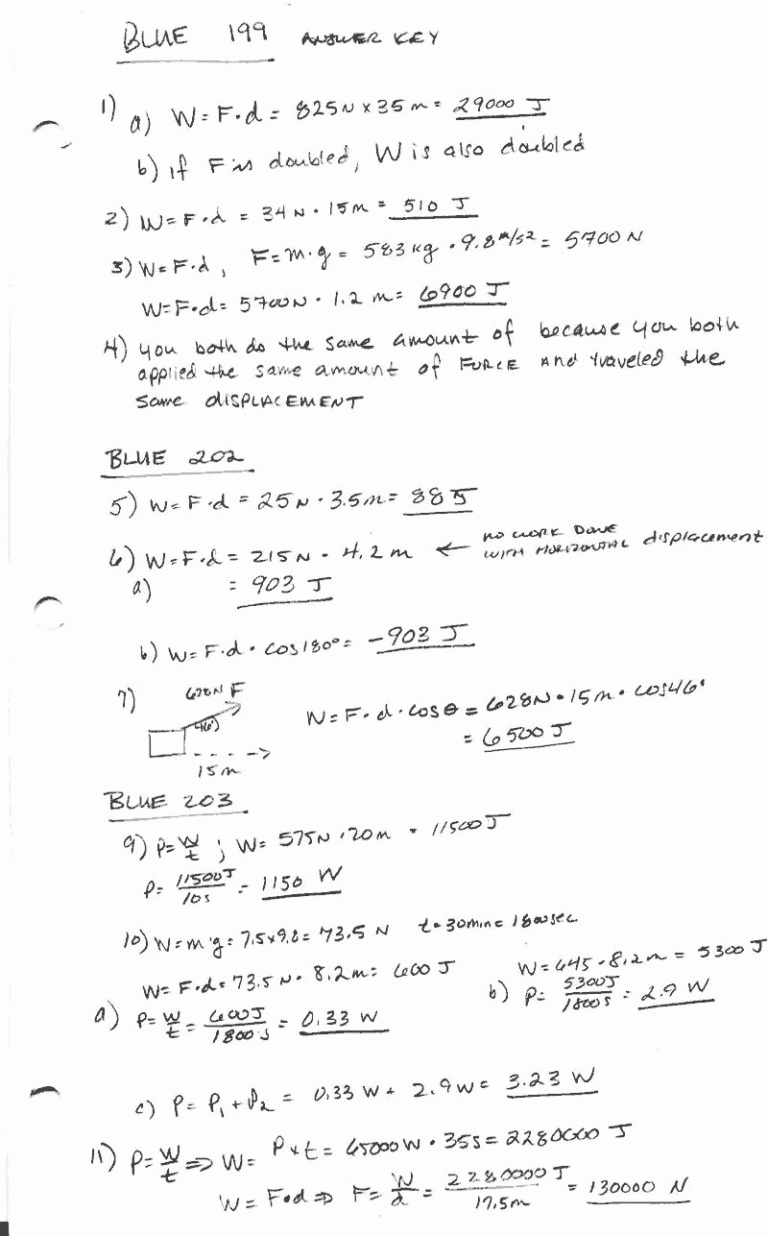 BLUE 199 ANSWER KEY
1) a) W = F·d = 825N x 35 m = 29000 J
b) if F is doubled, W is also doubled
2) W = F·d = 34 N · 15m = 510 J
3) W = F·d, F = m·g = 583 kg · 9.8 m/s2 = 5700 N
W = F·d = 5700N · 1.2 m = 6900 J
4) you both do the same amount of because you both
applied the same amount of FORCE And traveled the
same DISPLACEMENT
BLUE 202
5) W = F·d = 25 N · 3.5m = 88 J
6) W = F·d = 215 N · 4.2 m ← no work Done
with HORIZONTAL displacement
a) = 903 J
b) W = F·d · cos180° = -903 J
7) 628N F
46°
W = F·d·cosθ = 628N · 15m · cos46°
= 6500 J
15m
BLUE 203
9) P = W/t ; W = 575N · 20m = 11500 J
P = 11500J/10s = 1150 W
10) W = m·g = 7.5x9.8 = 73.5 N t = 30min = 1800sec
W = F·d = 73.5 N · 8.2m = 600 J
W = 645 · 8.2m = 5300 J
a) P = W/t = 600J/1800s = 0.33 W
b) P = 5300J/1800s = 2.9 W
c) P = P1 + P2 = 0.33 W + 2.9 W = 3.23 W
11) P = W/t ⇒ W = P x t = 65000W · 35s = 2280000 J
W = F·d ⇒ F = W/d = 2280000 J/17.5m = 130000 N